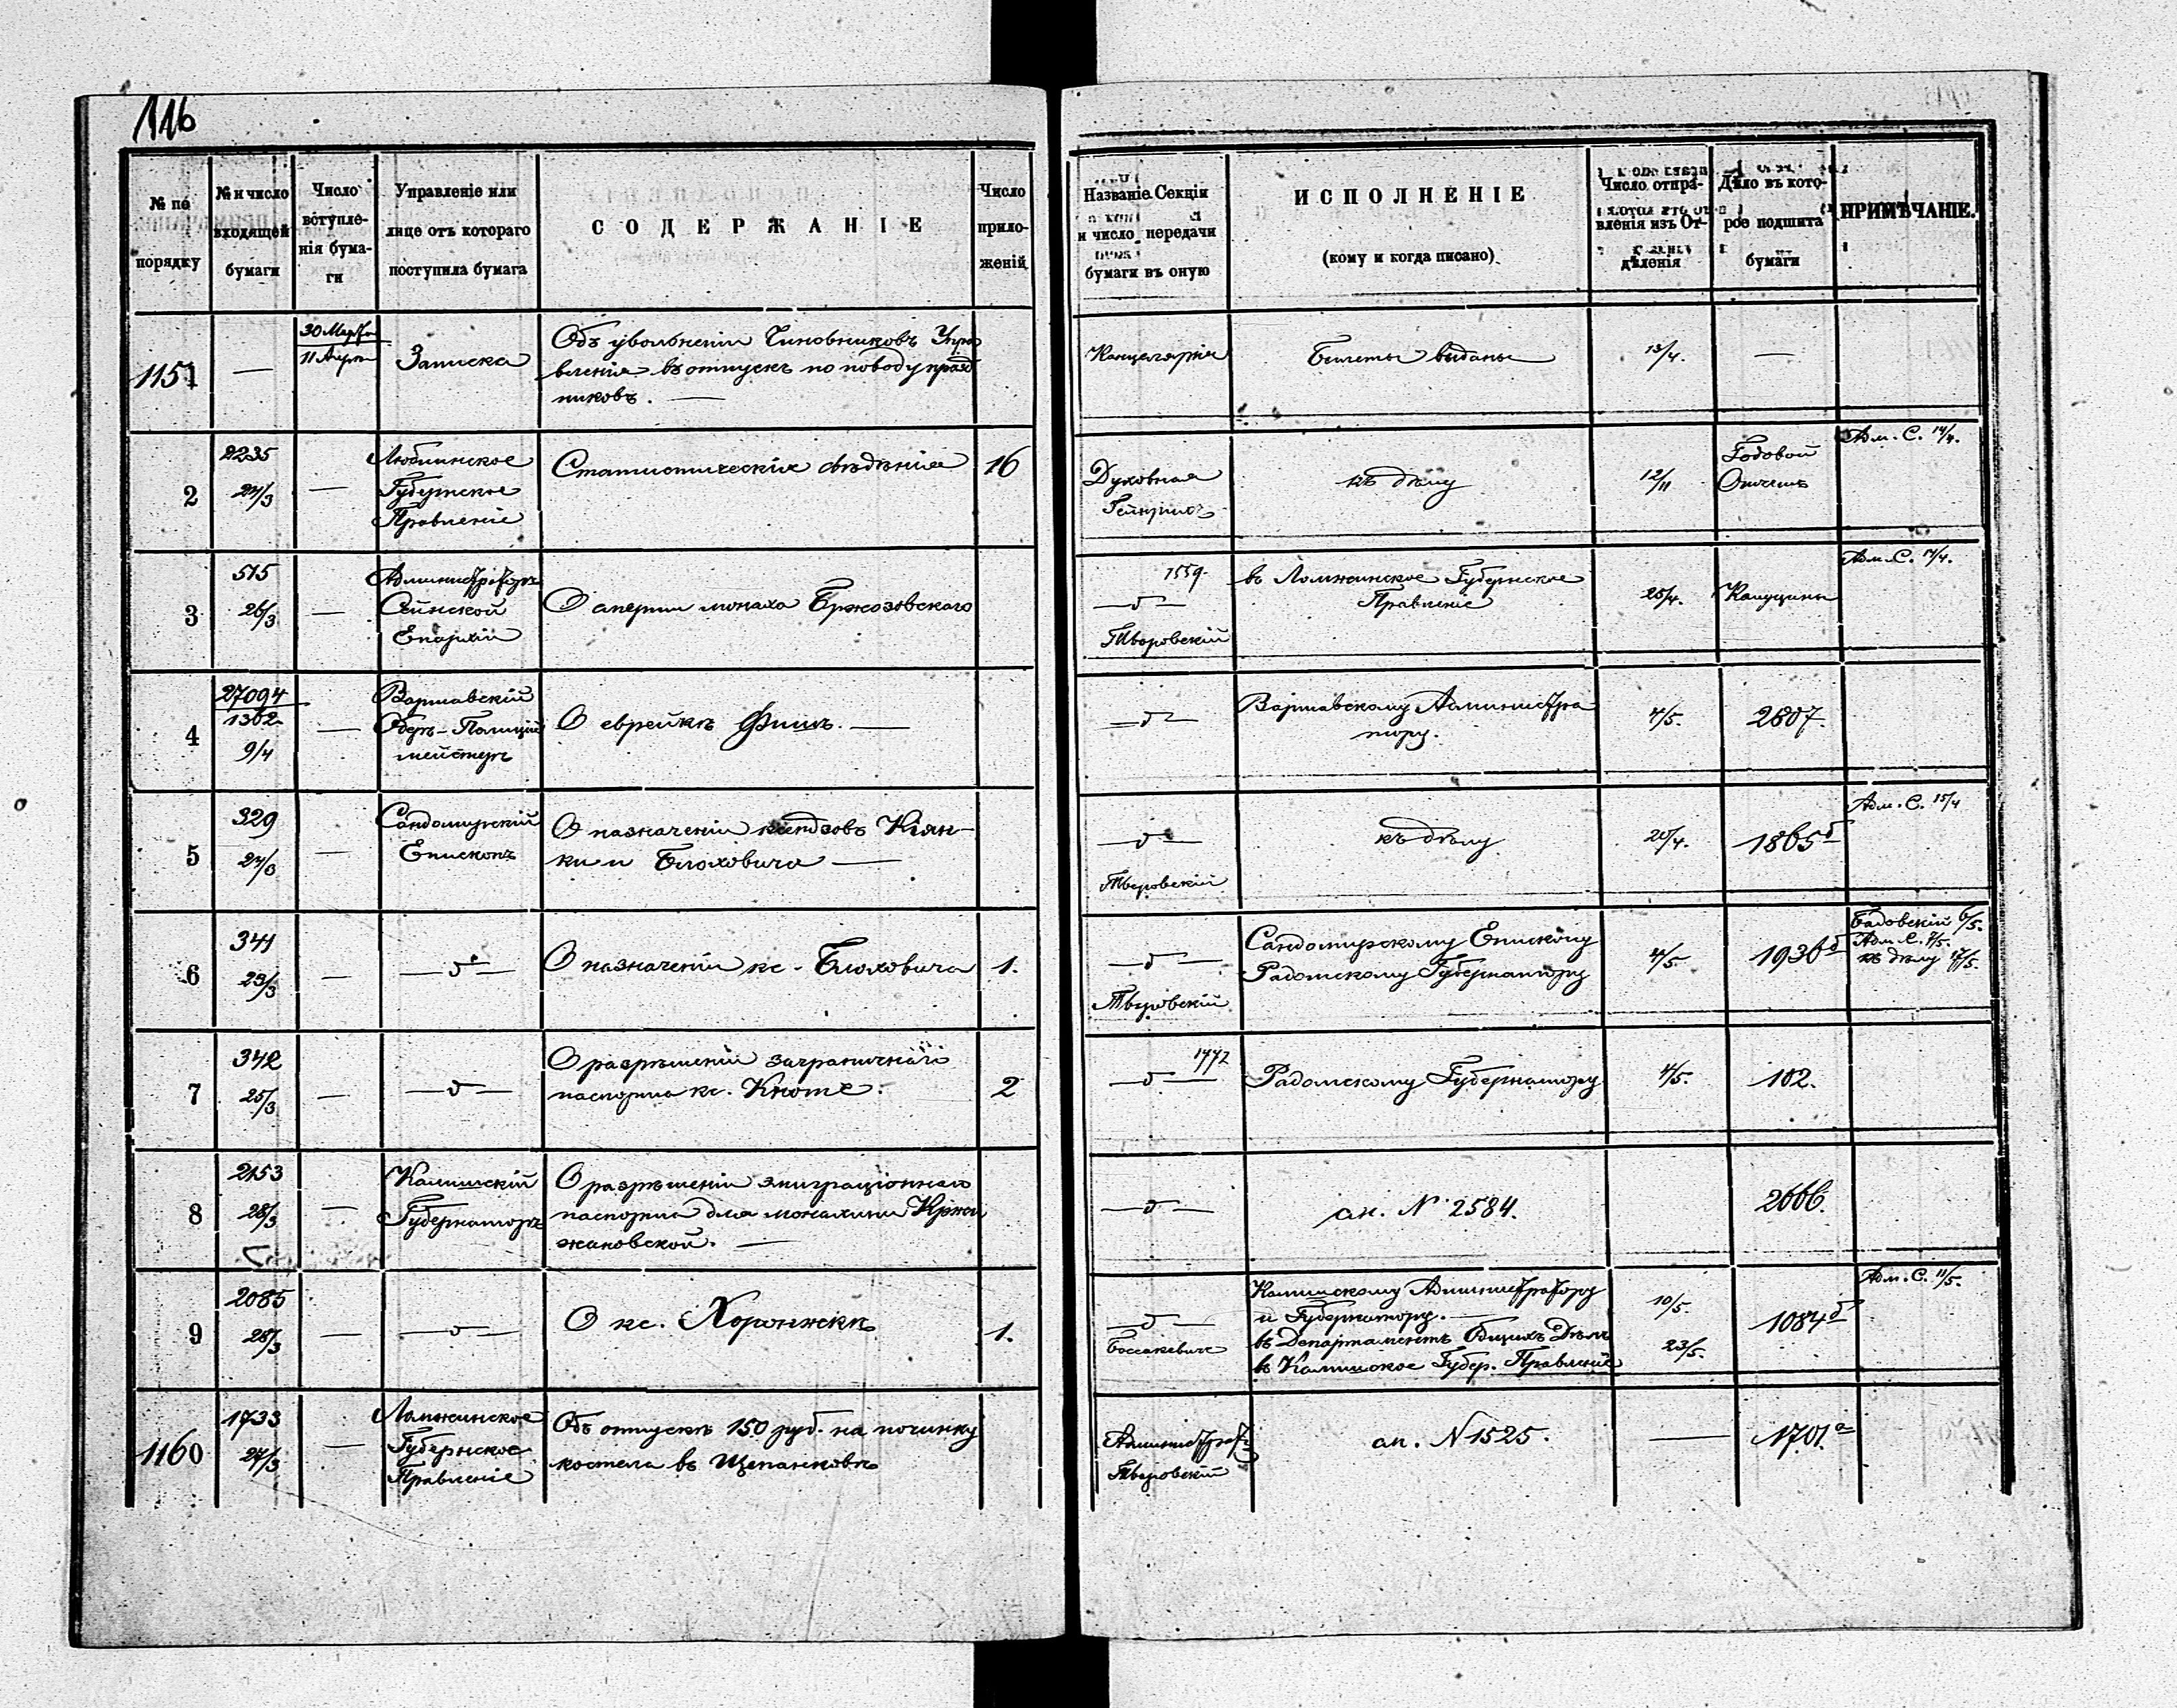 116
№ по порядку
№ и число входящей бумаги
Число вступле-нія бума-ги
Управленіе или лице отъ котораго поступила бумага
СОДЕРЖАНІЕ
Число прило-женій
Названіе Секціи и число передачи бумаги въ оную
ИСПОЛНЕНІЕ
(кому и когда писано)
Число отпра-вленія изъ От-дѣленія
Дѣло въ кото-рое подшита бумаги
ПРИМѢЧАНІЕ.
1151 — 30 Марта
11 Апрѣля
Записка
Объ увольненіи Чиновниковъ Упра
вленія въ отпускъ по поводу празд
никовъ. —
Канцелярія
Билеты выданы
13/4. —
2
2235
24/3 —
Люблинское
Губернское
Правленіе
Статистическія свѣдѣнія
16
Духовная
къ дѣлу
12/11
Годовой
Отчетъ
Адм. С. 14/4.
3
515
26/3 —
Администраторъ
Сейнской
Епархіи
О смерти монаха Бржозовскаго
1559.
— д —
Творовскій
въ Ломжинское Губернское
Правленіе
25/4.
Капуцины
Адм. С. 14/4.
4
27094
1302
9/4 —
Варшавскій
Оберъ-Полиціи
мейстеръ
О еврейкѣ Фишъ. —
— д —
Варшавскому Администра
тору.
4/5.
2807
5
329
24/3 —
Сандомирскій
Епископъ
О назначеніи ксендзовъ Кіян-
ки и Блоховича —
— д —
Творовскій
къ дѣлу
20/4.
1865 б
Адм. С. 15/4
6
341
23/3 —
— д —
О назначеніи кс. Блоховича
1.
— д —
Творовскій
Сандомирскому Епископу
Радомскому Губернатору
4/5.
1936 б
Бадовскій 6/5.
Адм. С. 7/5.
къ дѣлу 17/5.
7
342
25/3 —
— д —
О разрѣшеніи заграничнаго
паспорта кс. Кноте.
2
1772
— д —
Радомскому Губернатору
4/5.
102.
8
2153
28/3 —
Калишскій
Губернаторъ
О разрѣшеніи эмиграціоннаго
паспорта для монахини Кржи
жановской. —
— д —
ан. N 2584.
2666.
9
2085
28/3 —
— д —
О кс. Хоронжкѣ
1.
— д —
Боссакевичъ
Калишскому Администратору
и Губернатору. —
въ Департаментъ Общихъ Дѣлъ
въ Калишское Губер. Правленіе
10/5.
23/5.
1084 б
Адм. С. 11/5.
1160
1733
27/3 —
Ломжинское
Губернское
Правленіе
Объ отпускѣ 150 руб. на починку
костела въ Щепанковѣ
Администрат.
Творовскій
ан. N 1525.
—
1701. а